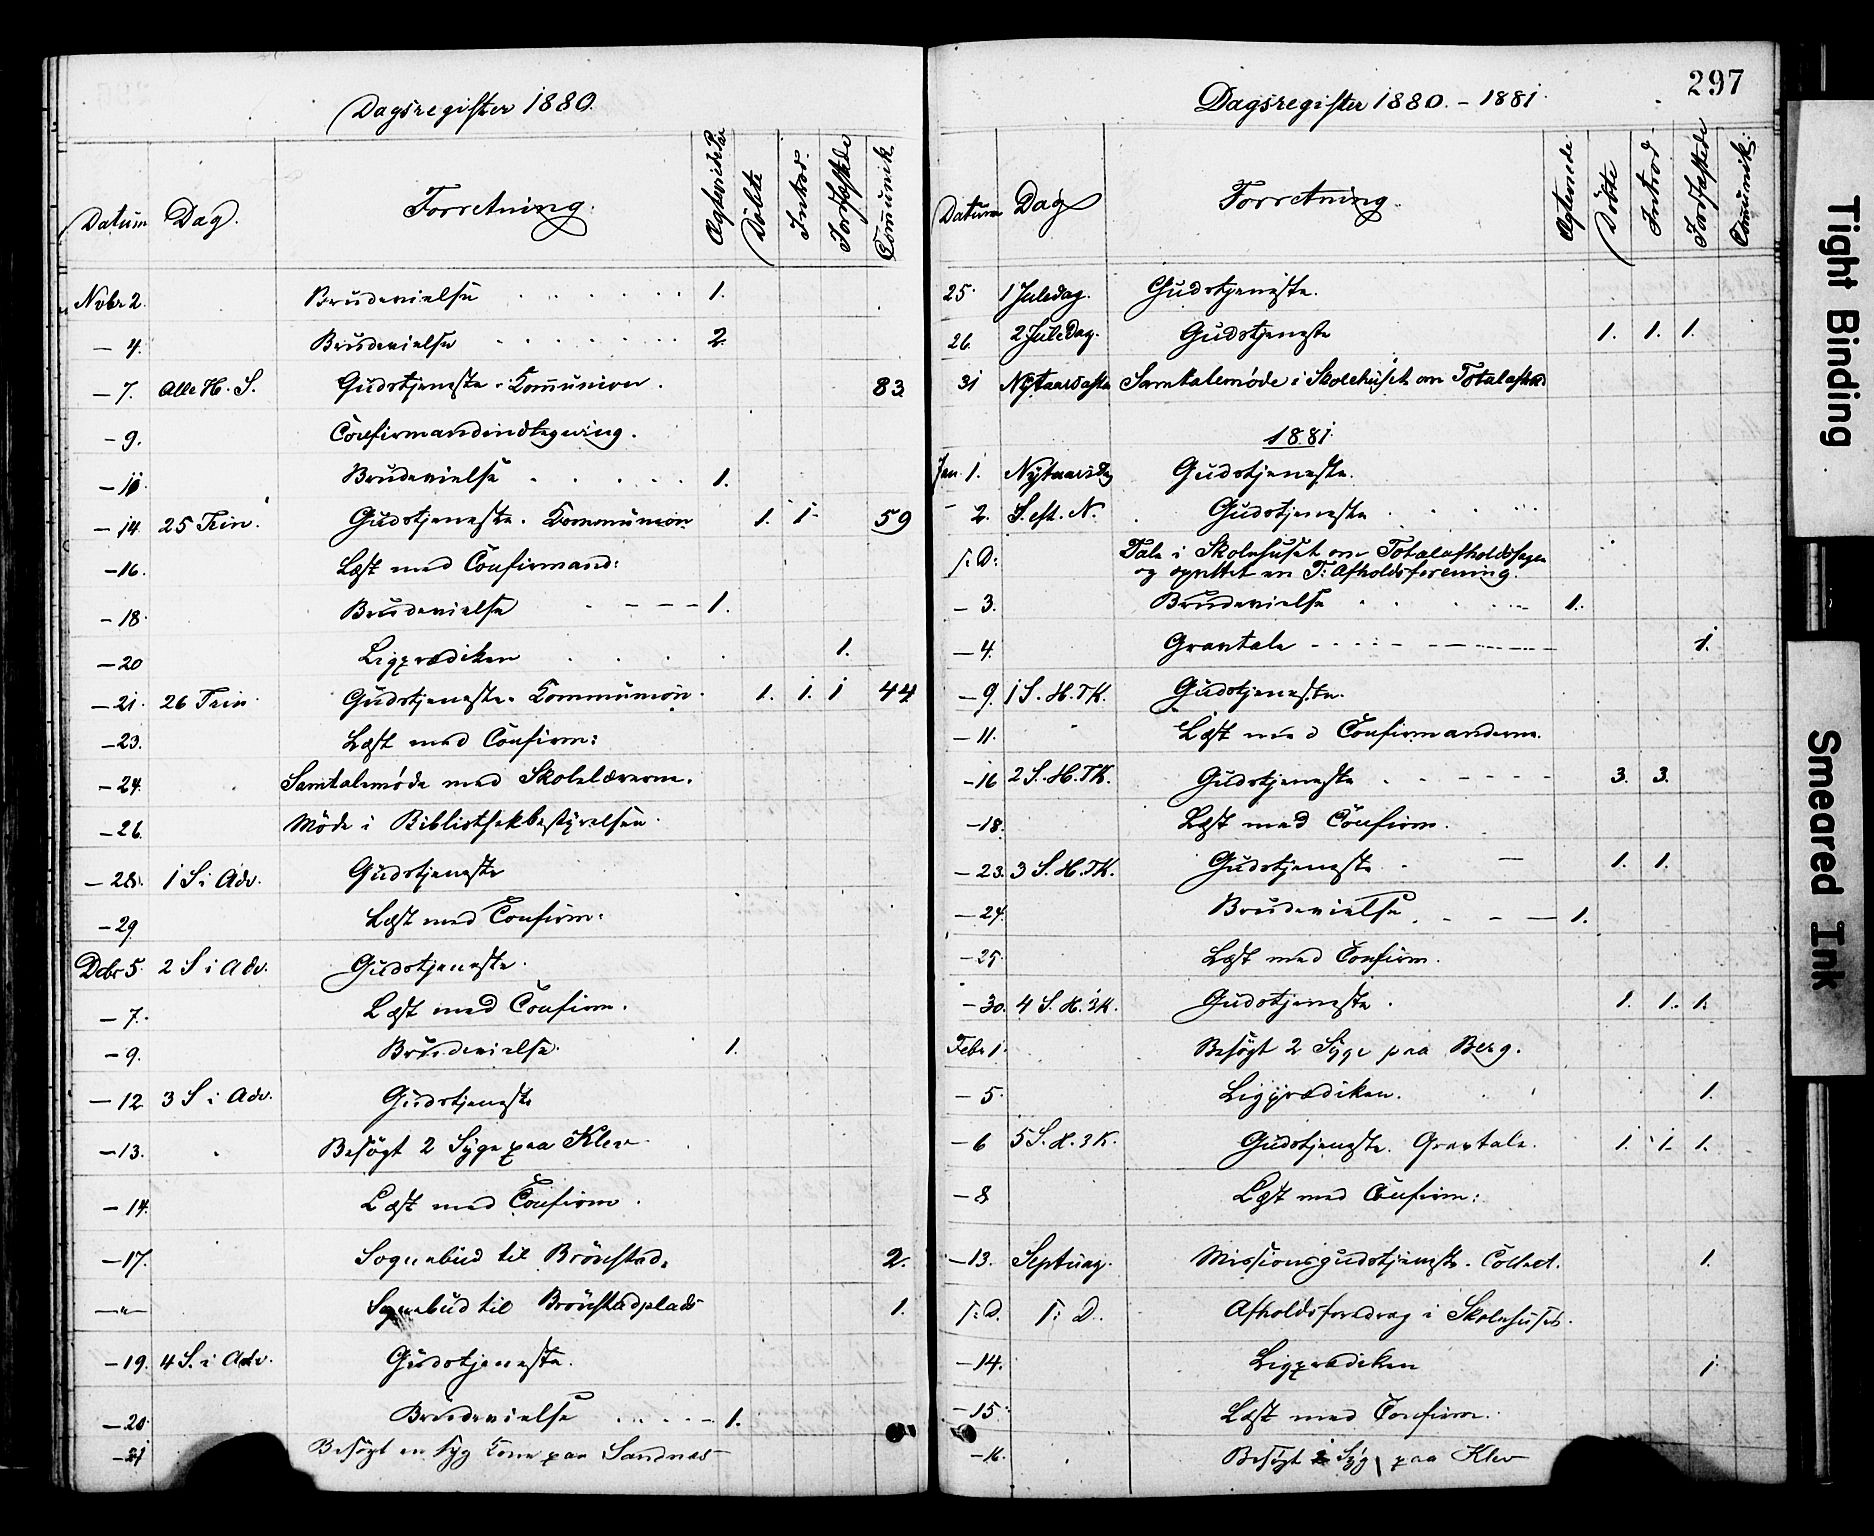 Dagsregister 1880.
Datum Dag. Forretning. Døbte Introd. Jordfæstede Communik.
Novbr 2. Brudevielse 1.
- 4. Brudevielse 2.
- 7. Alle H. S. Gudstjeneste. Communion. 83
- 9. Confirmandindtegning.
- 10. Brudevielse 1.
- 14 25 Trin. Gudstjeneste. Kommunion 1. 1. 59
- 16. Læst med Confirmand:
- 18. Brudevielse 1.
- 20 Ligprædiken 1.
- 21. 26 Trin. Gudstjeneste. Kommunion. 1. 1. 1 44
- 23. Læst med Confirm:
- 24. Samtalemøde med Skolelærerne.
- 26. Møde i Bibliothekbestyrelsen.
- 28. 1 S i Adv. Gudstjeneste
- 29 Læst med Confirm:
Dcbr 5. 2 S i Adv. Gudstjeneste.
- 7. Læst med Confirm.
- 9. Brudevielse. 1.
- 12 3 S i Adv. Gudstjeneste
- 13. Besøgt 2 Syge paa Klev
- 14. Læst med Confirm.
- 17. Sognebud til Brønstad. 2.
- " - Sognebud til Brønstadplads 1.
- 19. 4 S. i Adv. Gudstjeneste.
- 20. Brudevielse 1.
- 21 Besøgt en syg Kone paa Sandnes
297
Dagsregister 1880. - 1881.
Datum Dag Forretning. Døbte Introd. Jordfæstede Communik:
25. 1 Juledag. Gudstjeneste.
26. 2 Juledag. Gudstjeneste 1. 1. 1.
31 Nytaarsaften Samtalemøde i Skolehuset om Totalafhold
1881.
Jan. 1. Nytaarsdag Gudstjeneste.
- 2. S. eft. N. Gudstjeneste
s: D: Tale i Skolehuset om Totalafholdssagen
og oprettet en T: Afholdsforening.
- 3. Brudevielse 1.
- 4. Gravtale 1.
- 9. 1 S. H.3K. Gudstjeneste.
- 11. Læst med Confirmanderne.
- 16 2 S. H.3K. Gudstjeneste 3. 3.
- 18. Læst med Confirm.
- 23. 3 S. H.3K. Gudstjeneste 1. 1.
- 24. Brudevielse 1.
- 25. Læst med Confirm.
- 30. 4 S. H.3K. Gudstjeneste 1. 1. 1.
Febr 1. Besøgt 2 Syge paa Berg.
- 5. Ligprædiken. 1.
- 6 5 S. H.3K. Gudstjeneste. Gravtale. 1. 1. 1.
- 8 Læst med Confirm:
- 13. Septuag. Missionsgudstjeneste. Collect. 1.
s. D. s: D. Afholdsforedrag i Skolehuset.
- 14. Ligprædiken 1.
- 15. Læst med Confirm.
- 16. Besøgt Syg paa Klev
Tight Binding
Smeared Ink